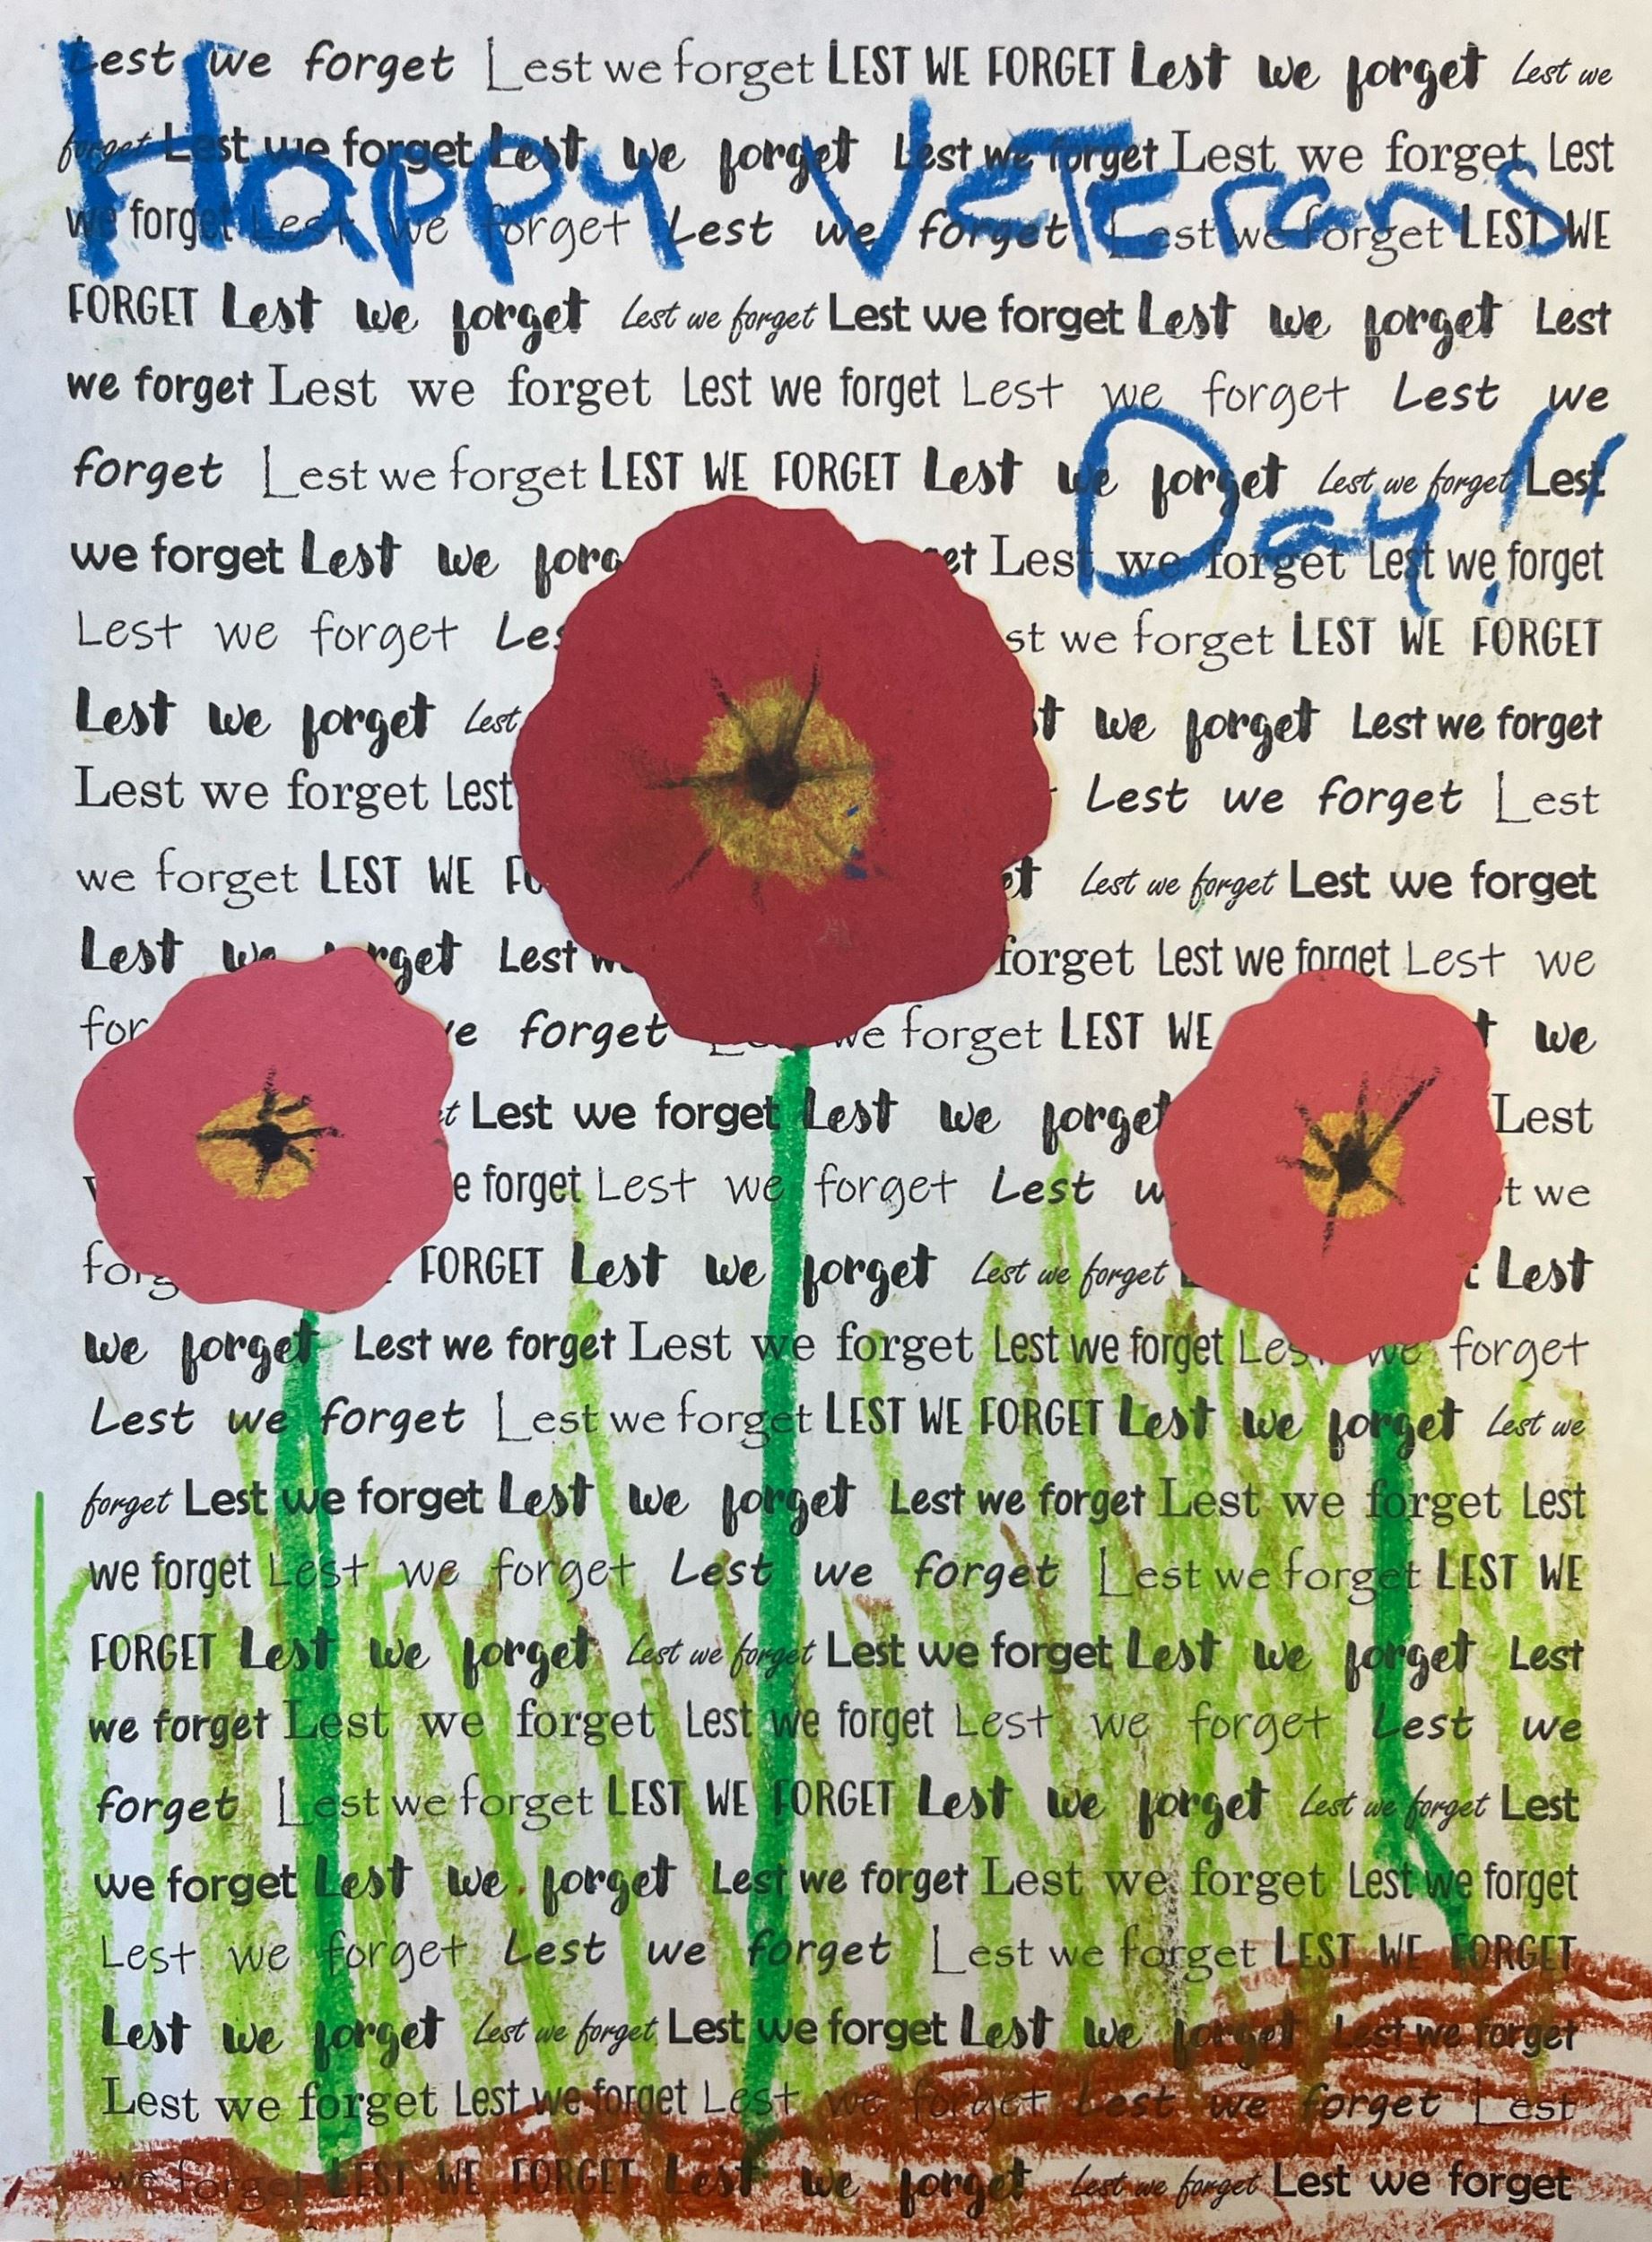 Happy Veterans
Day!!
Lest we forget Lest we forget LEST WE FORGET Lest we forget Lest we
forget Lest we forget Lest we forget Lest we forget Lest we forget Lest
we forget Lest we forget Lest we forget Lest we forget LEST WE
FORGET Lest we forget Lest we forget Lest we forget Lest we forget Lest
we forget Lest we forget Lest we forget Lest we forget Lest we
forget Lest we forget LEST WE FORGET Lest we forget Lest we forget Lest
we forget Lest we Lest we forget Lest we forget
Lest we forget we forget LEST WE FORGET
Lest we forget Lest we forget Lest we forget
Lest we forget Lest Lest we forget Lest
we forget LEST WE Lest we forget Lest we forget
Lest we Lest forget Lest we forget Lest we
forget we forget LEST WE we
Lest we forget Lest we forget Lest
forget Lest we forget Lest we
FORGET Lest we forget Lest we forget Lest
we forget Lest we forget Lest we forget Lest we forget we forget
Lest we forget Lest we forget LEST WE FORGET Lest we forget Lest we
forget Lest we forget Lest we forget Lest we forget Lest we forget Lest
we forget Lest we forget Lest we forget Lest we forget LEST WE
FORGET Lest we forget Lest we forget Lest we forget Lest we forget Lest
we forget Lest we forget Lest we forget Lest we forget Lest we
forget Lest we forget LEST WE FORGET Lest we forget Lest we forget Lest
we forget Lest we forget Lest we forget Lest we forget Lest we forget
Lest we forget Lest we forget Lest we forget LEST WE FORGET
Lest we forget Lest we forget Lest we forget Lest we forget Lest we forget
Lest we forget Lest we forget Lest we forget Lest we forget Lest
we forget LEST WE FORGET Lest we forget Lest we forget Lest we forget